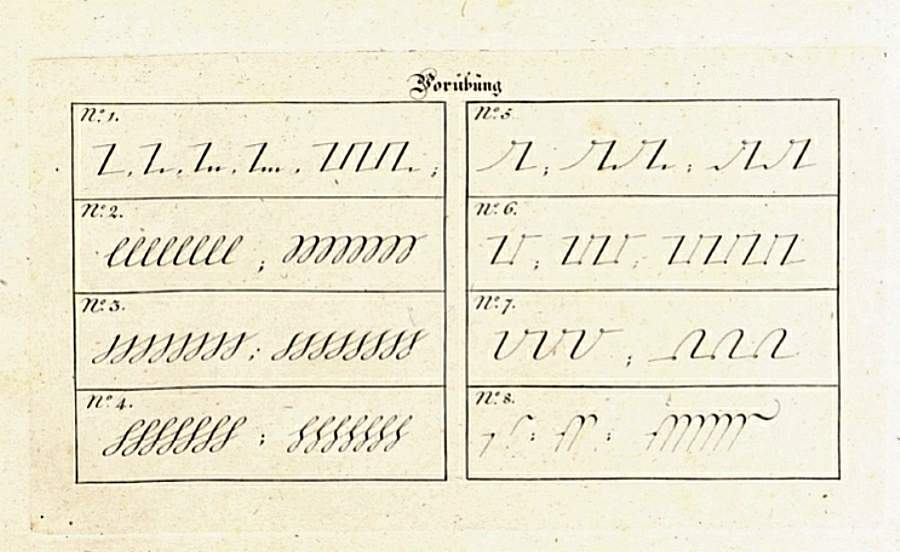 Vorübung
No. 1.
No. 2.
No. 3.
No. 4.
No. 5.
No. 6.
No. 7.
No. 8.